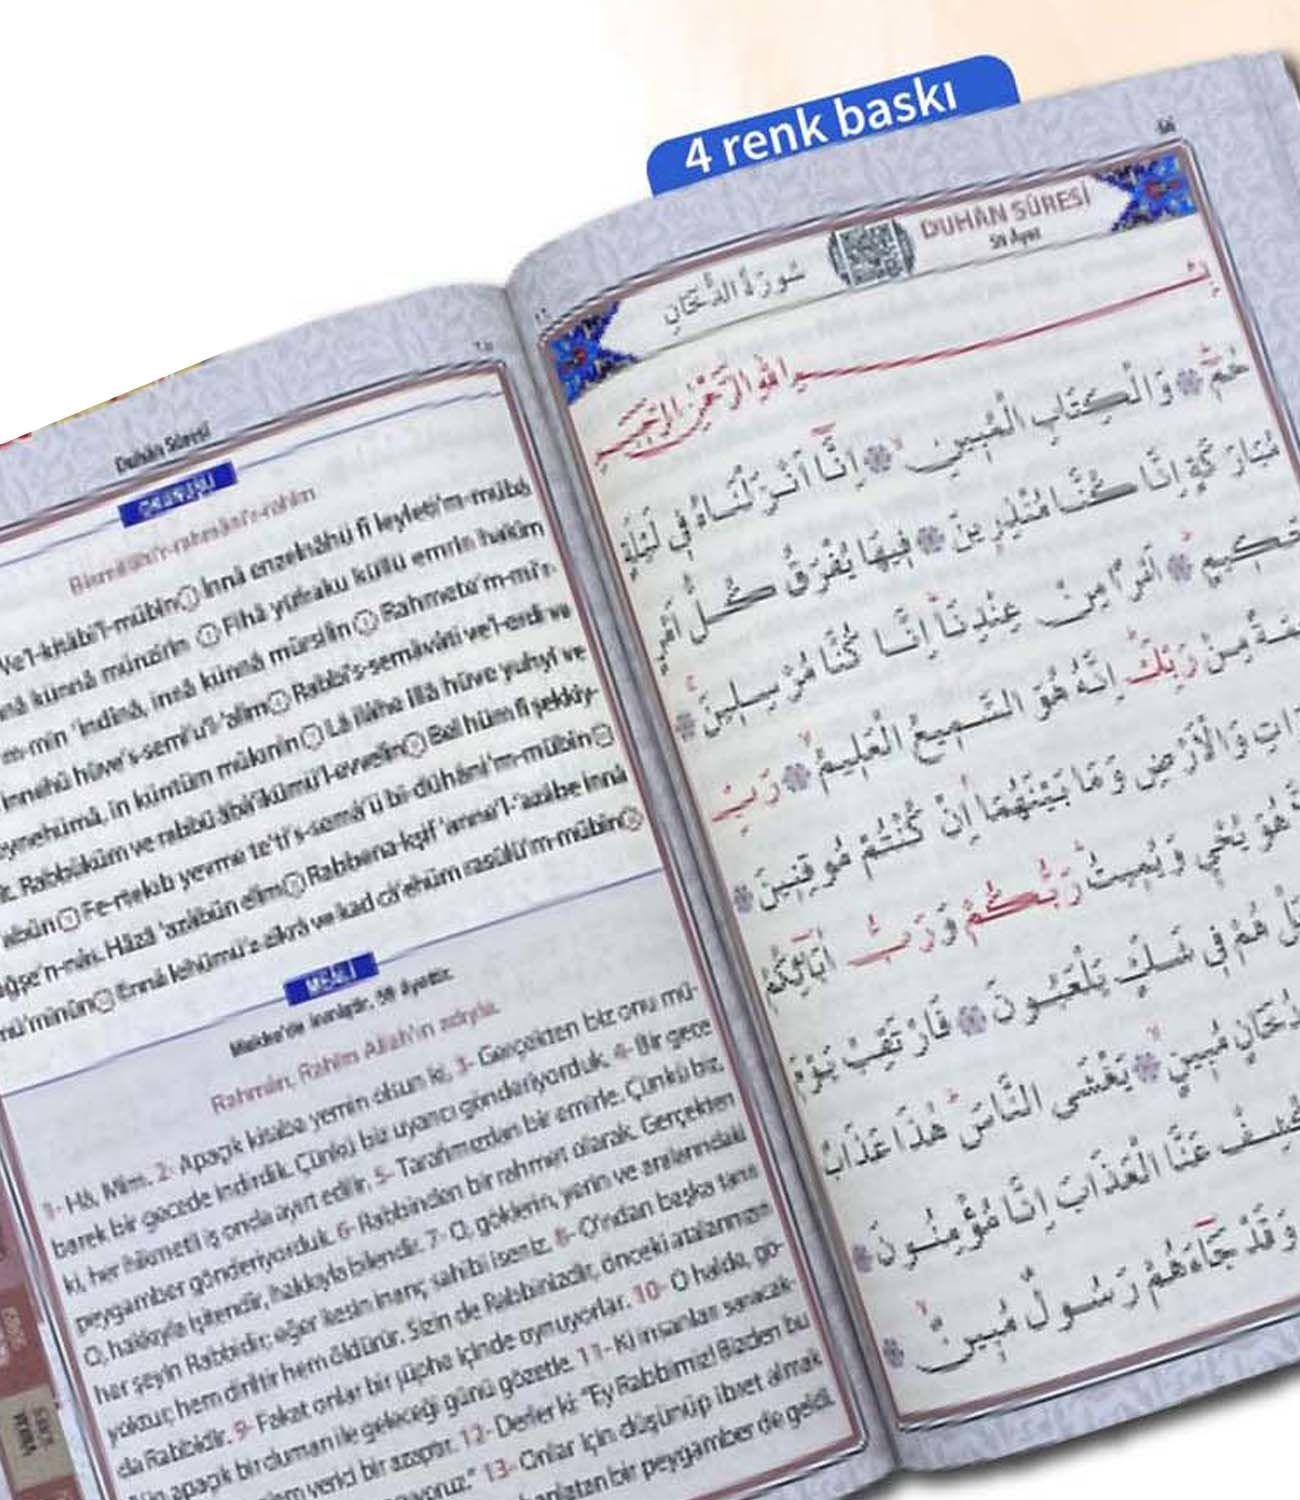 4 renk baskı
Duhân Sûresi
OKUNUŞU
Bismillâhi'r-rahmâni'r-rahîm
Ve'l-kitâbi'l-mübîn İnnâ enzelnâhü fî leyleti'm-mübâ
künnâ münzirîn Fîhâ yüfraku küllü emrin hakîm
'indinâ, innâ künnâ mürsilîn Rahmete'm-mi'r-
innehû hüve's-semî'u'l-'alîm Rabbi's-semâvâti ve'l-erdi ve
beynehümâ, in küntüm mûkınîn Lâ ilâhe illâ hüve yuhyî ve
Rabbüküm ve rabbü âbâikümü'l-evvelîn Bel hüm fî şekkiy-
Fe-rtekıb yevme te'ti's-semâ'ü bi-dühâni'm-mübîn
Hâzâ 'azâbün elîm Rabbena-kşif 'anne'l-'azâbe innâ
mü'minûn Ennâ lehümü'z-zikrâ ve kad câ'ehüm rasûlü'm-mübîn
MEALİ
Mekke'de inmiştir. 59 Ayettir.
Rahmân, Rahîm Allah'ın adıyla.
1- Hâ, Mîm. 2- Apaçık kitaba yemin olsun ki, 3- Gerçekten biz onu mü-
barek bir gecede indirdik. Çünkü biz uyarıcı gönderiyorduk. 4- Bir gece
ki, her hikmetli iş onda ayırt edilir. 5- Tarafımızdan bir emirle. Çünkü biz,
peygamber gönderiyorduk. 6- Rabbinden bir rahmet olarak. Gerçekten
O, hakkıyla işitendir, hakkıyla bilendir. 7- O, göklerin, yerin ve aralarındaki
her şeyin Rabbidir; eğer kesin inanç sahibi iseniz. 8- O'ndan başka tanrı
yoktur; hem diriltir hem öldürür. Sizin de Rabbinizdir, önceki atalarınızın
da Rabbidir. 9- Fakat onlar bir şüphe içinde oynuyorlar. 10- O halde, gö-
ğün apaçık bir duman ile geleceği günü gözetle. 11- Ki insanları saracak-
elem verici bir azaptır. 12- Derler ki: "Ey Rabbimiz! Bizden bu
13- Onlar için düşünüp ibret almak
anlatan bir peygamber de geldi.
سُورَةُ الدُّخَانِ
DUHÂN SÛRESİ
59 Ayet
بِسْمِ اللهِ الرَّحْمٰنِ الرَّحِيمِ
حٰمٓ وَالْكِتَابِ الْمُبِينِ اِنَّٓا اَنْزَلْنَاهُ فِي لَيْلَةٍ
مُبَارَكَةٍ اِنَّا كُنَّا مُنْذِرِينَ فِيهَا يُفْرَقُ كُلُّ اَمْرٍ
حَكِيمٍ اَمْرًا مِنْ عِنْدِنَا اِنَّا كُنَّا مُرْسِلِينَ
مِنْ رَبِّكَ اِنَّهُ هُوَ السَّمِيعُ الْعَلِيمُ رَبِّ
وَالْاَرْضِ وَمَا بَيْنَهُمَا اِنْ كُنْتُمْ مُوقِنِينَ
هُوَ يُحْيِي وَيُمِيتُ رَبُّكُمْ وَرَبُّ اٰبَٓائِكُمُ
بَلْ هُمْ فِي شَكٍّ يَلْعَبُونَ فَارْتَقِبْ يَوْمَ
بِدُخَانٍ مُبِينٍ يَغْشَى النَّاسَ هٰذَا عَذَابٌ
اكْشِفْ عَنَّا الْعَذَابَ اِنَّا مُؤْمِنُونَ
وَقَدْ جَٓاءَهُمْ رَسُولٌ مُبِينٌ